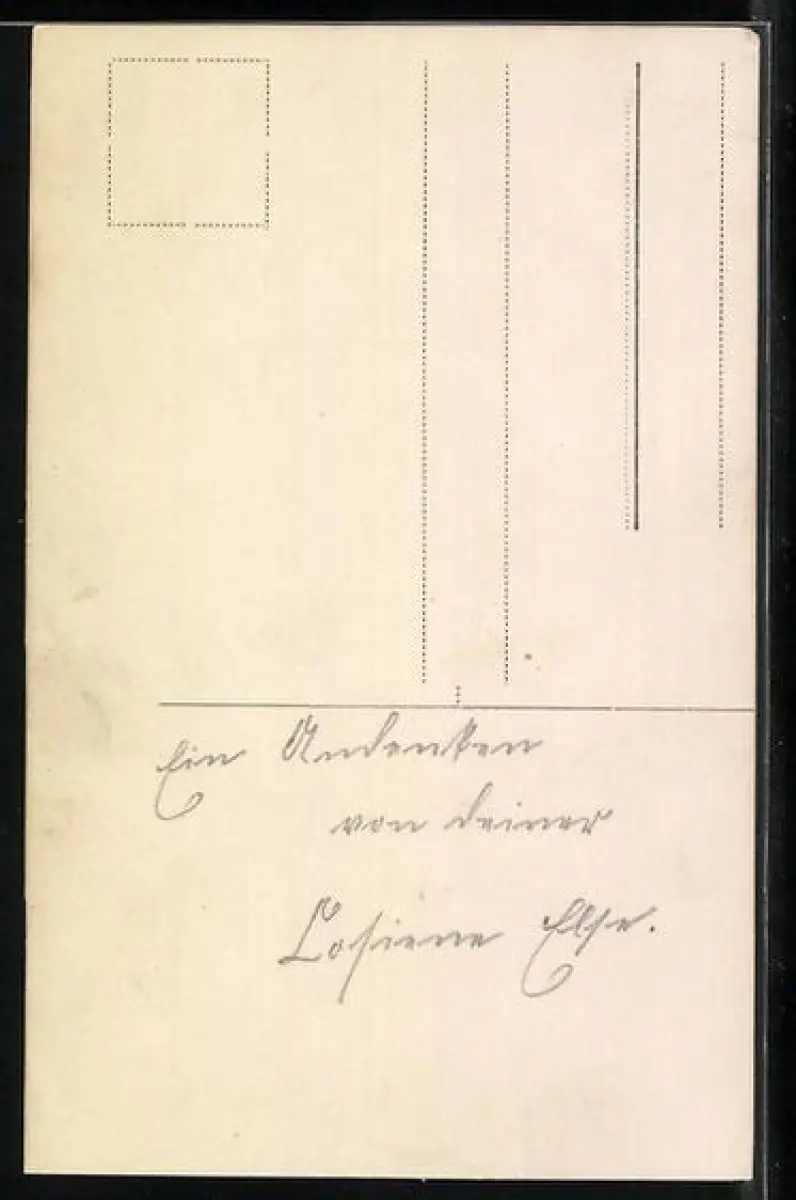 Ein Andenken
von deiner
Cosiene Else.